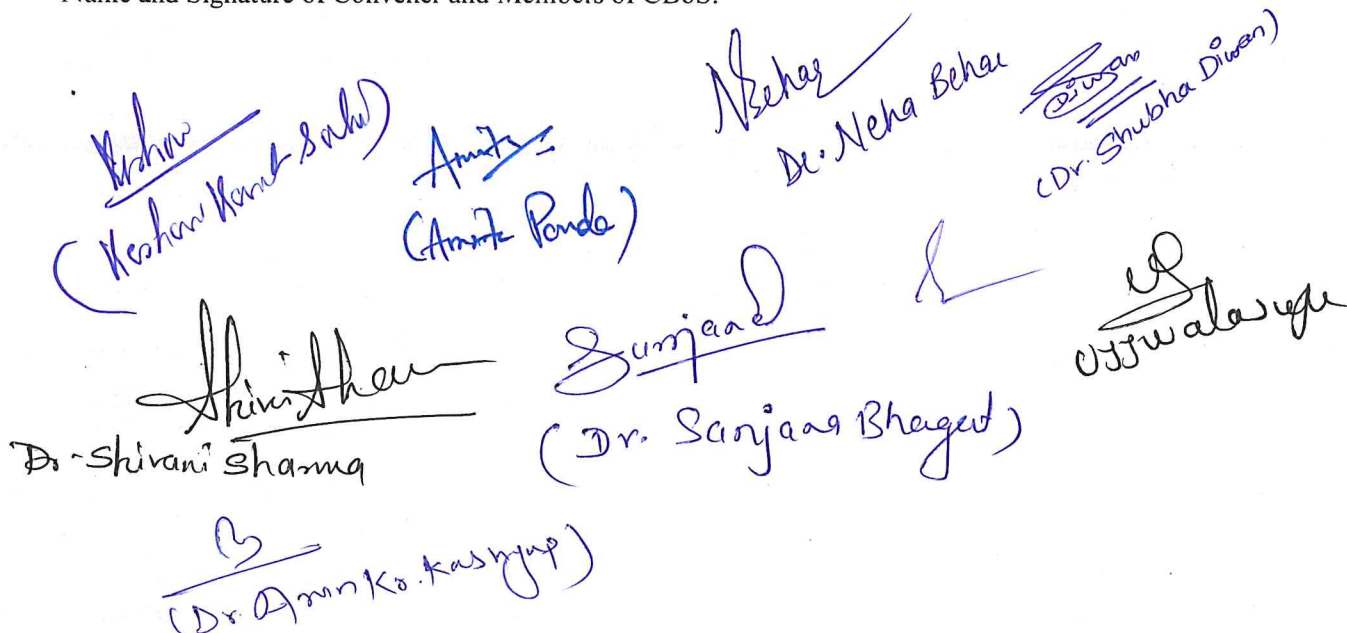 Name and Signature of Convener and Members of CBoS:
Keshav
(Keshav Kant Sahu)
Amrita
(Amrita Panda)
NBehar
Dr. Neha Behar
Diwan
(Dr. Shubha Diwan)
Dr. Shivani Sharma
Sanjana
(Dr. Sanjana Bhagat)
Ujjwala
(Dr. Arun Kr. Kashyap)